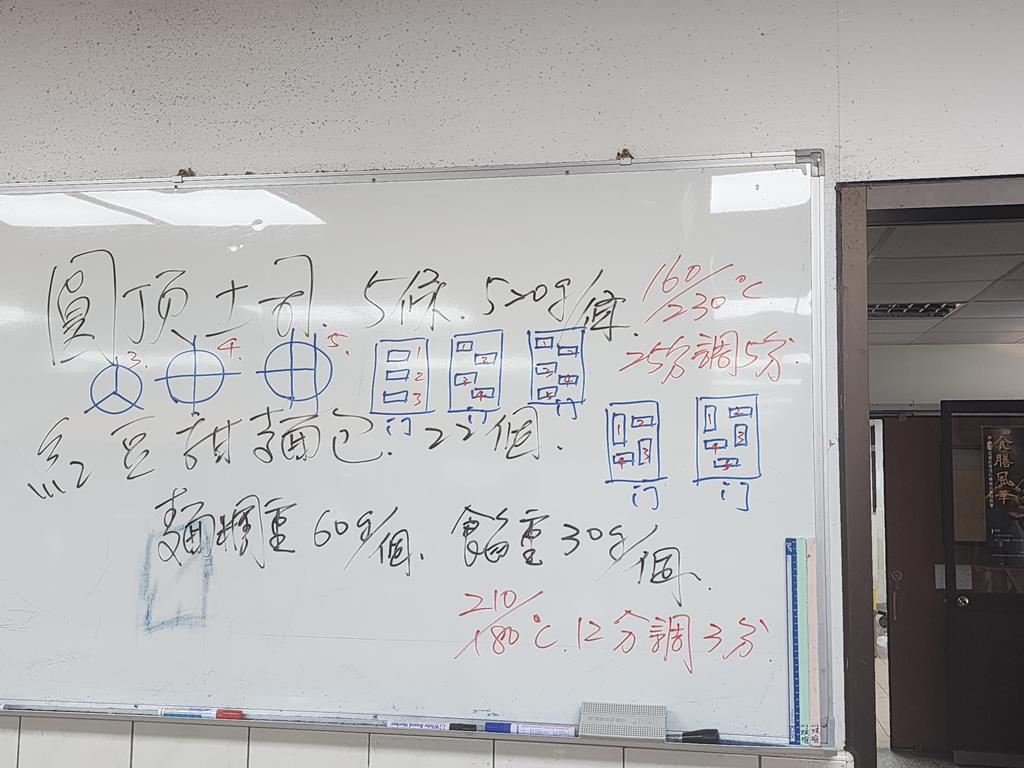 圓頂土司. 5條. 520g/個. 160/230°C
25分調5分.
3. 4. 5.
1 2 3
1 2 3 4
1 2 3 4 5
门 门 门
紅豆甜麵包. 22個.
1 2 3 4
1 2 3 4 5
门 门
麵糰重 60g/個. 餡重 30g/個.
210/180°C. 12分調3分.
金膳風華
White Board Marker